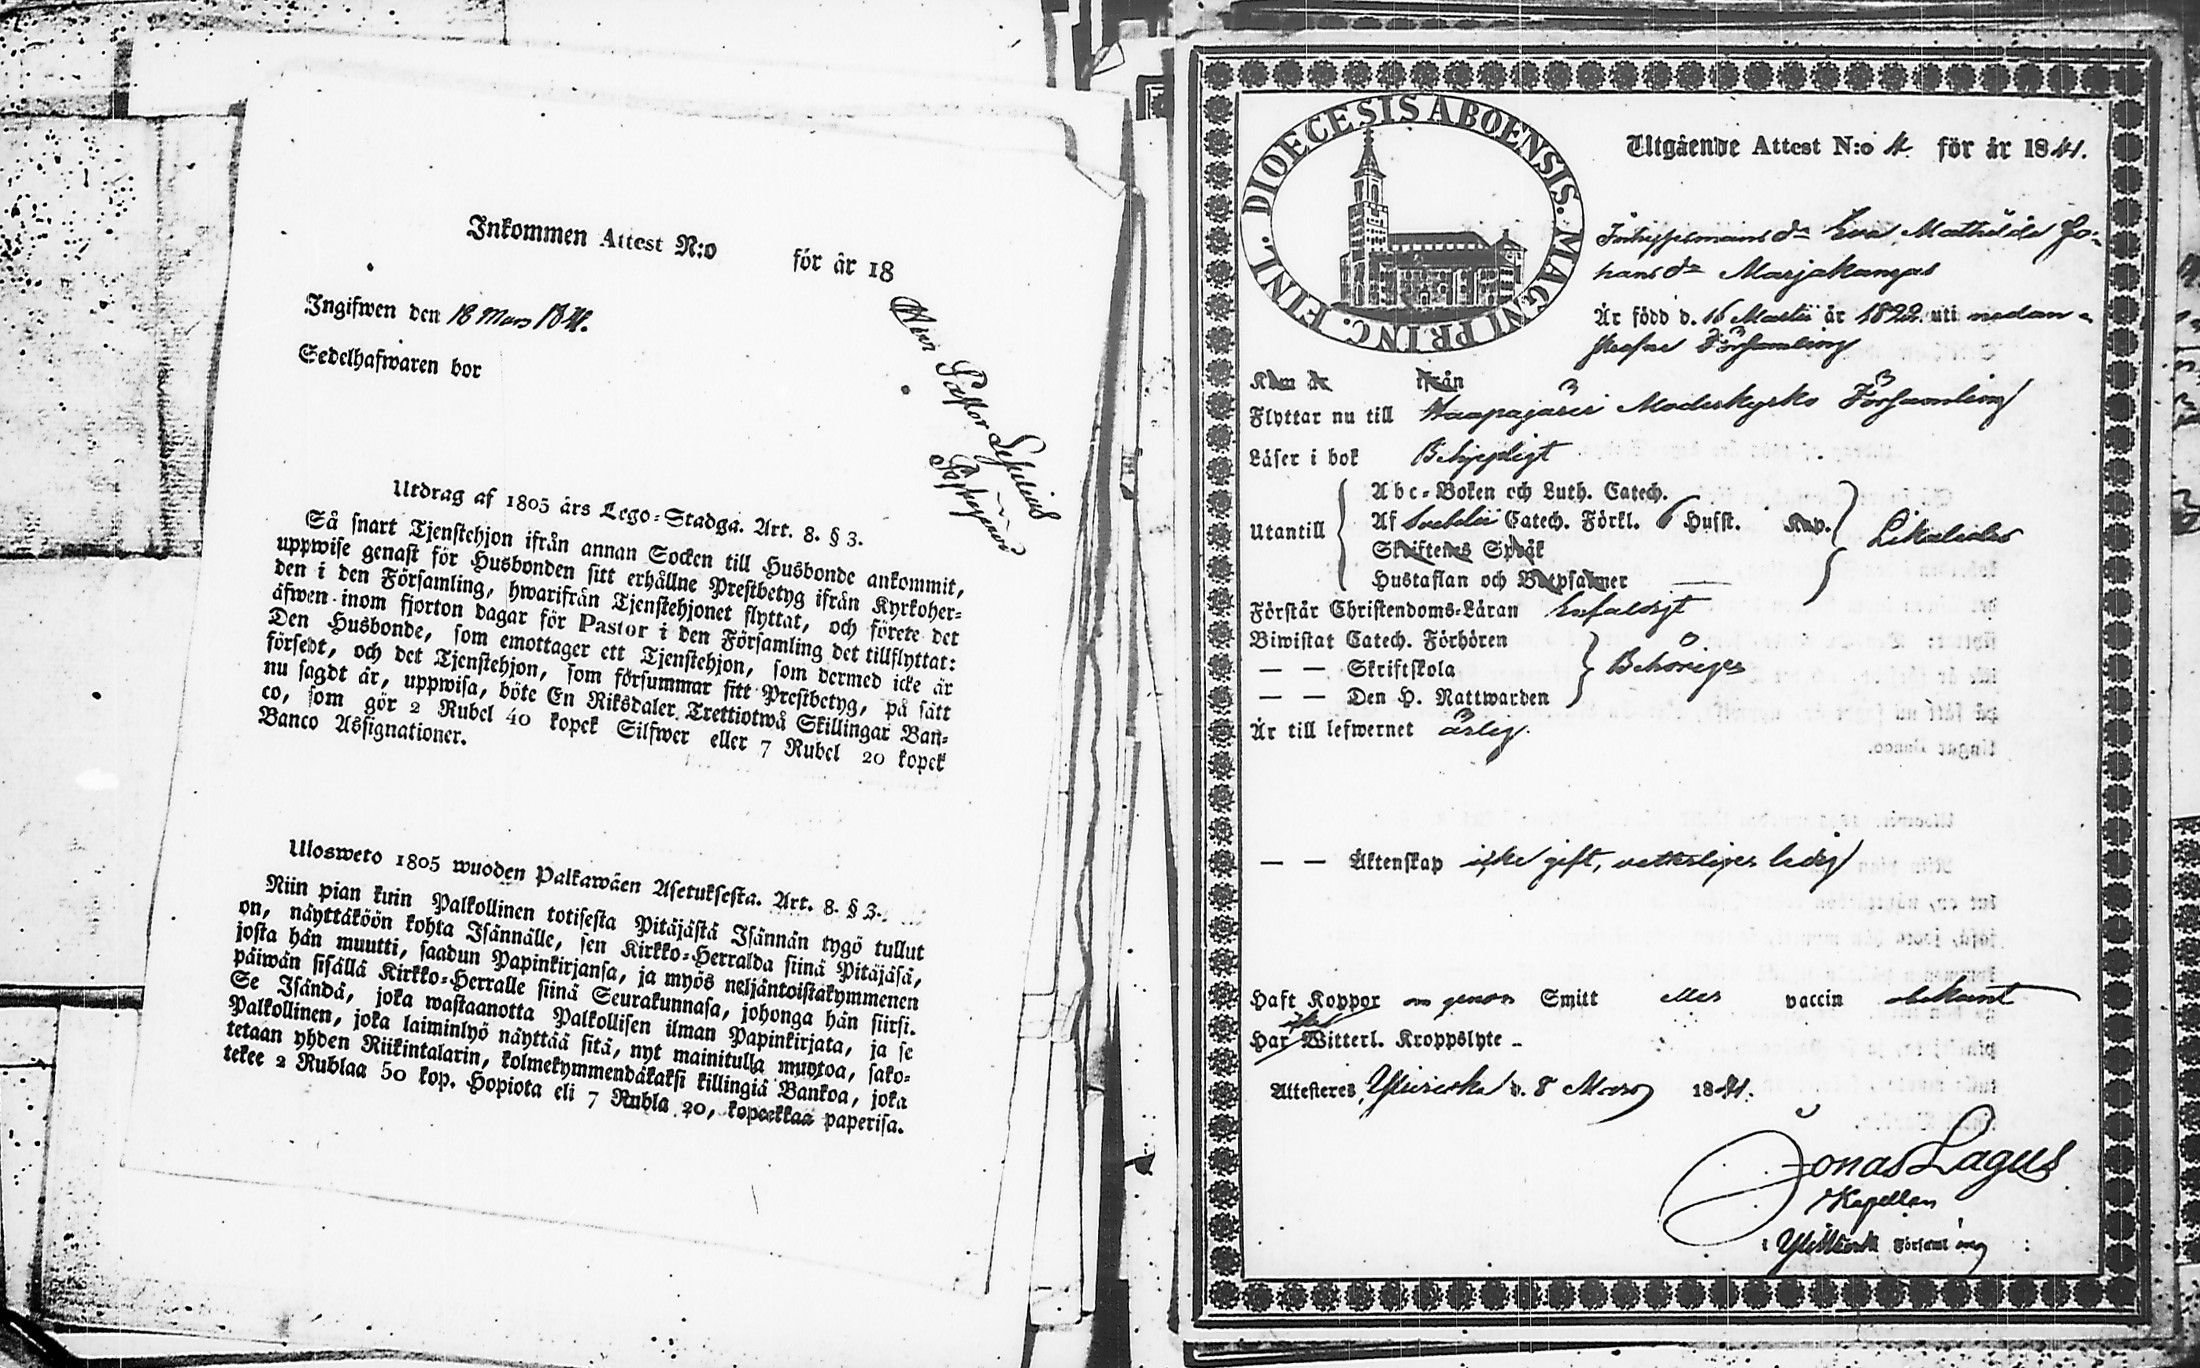 Inkommen Attest N:o för år 18
Ingifwen den 18 Mars 1841.
Sedelhafwaren bor
Herr Pastor
Utdrag af 1805 års Lego-Stadga. Art. 8. § 3.
Så snart Tjenstehjon ifrån annan Socken till Husbonde ankommit,
uppwise genast för Husbonden sitt erhållne Prestbetyg ifrån Kyrkoher-
den i den Församling, hwarifrån Tjenstehjonet flyttat, och förete det
äfwen inom fjorton dagar för Pastor i den Församling det tillflyttat:
Den Husbonde, som emottager ett Tjenstehjon, som dermed icke är
försedt, och det Tjenstehjon, som försummar sitt Prestbetyg, på sätt
nu sagdt är, uppwisa, böte En Riksdaler Trettiotwå Skillingar Ban-
co, som gör 2 Rubel 40 kopek Silfwer eller 7 Rubel 20 kopek
Banco Assignationer.
Ulosweto 1805 wuoden Palkawäen Asetuksesta. Art. 8. § 3.
Niin pian kuin Palkollinen totisesta Pitäjästä Isännän tygö tullut
on, näyttäköön kohta Isännälle, sen Kirkko-Herralda siinä Pitäjäsä,
josta hän muutti, saadun Papinkirjansa, ja myös neljäntoistakymmenen
päiwän sisällä Kirkko-Herralle siinä Seurakunnasa, johonga hän siirsi.
Se Isändä, joka wastaanotta Palkollisen ilman Papinkirjata, ja se
Palkollinen, joka laiminlyö näyttää sitä, nyt mainitulla muotoa, sako-
tetaan yhden Riikintalarin, kolmekymmendäkaksi killingiä Bankoa, joka
tekee 2 Rublaa 50 kop. Hopiota eli 7 Rubla 20, kopeekkaa paperisa.
DIOECESIS ABOENSIS. MAGNI PRINC. FINL.
Utgående Attest N:o 4 för år 1841.
Inhysesmans dr Eva Mathilda Jo-
hans dr Marjakangas
Är född d. 16 Martii år 1822 uti nedan-
skrefne Församling
Kom ifrån
Flyttar nu till Haapajärvi Moderkyrko Församling
Läser i bok Behjelpligt
Abc-Boken och Luth. Catech.
Utantill Af Svebelii Catech. Förkl. 6 Husst. Kap. Likaledes
Skriftenes Språk
Hustaflan och Botpsalmer
Förstår Christendoms-Läran Enfaldigt
Biwistat Catech. Förhören
— — Skriftskola Behörigen
— — Den H. Nattwarden
Är till lefwernet ärlig.
— — Äktenskap icke gift, vetterligen ledig
Haft Koppor om genom Smitt eller vaccin obekant
Har Witterl. Kroppslyte
Attesteres, Ylivieska d. 8 Mars 1841.
Jonas Lagus
Kapellan
i Ylivieska Församling